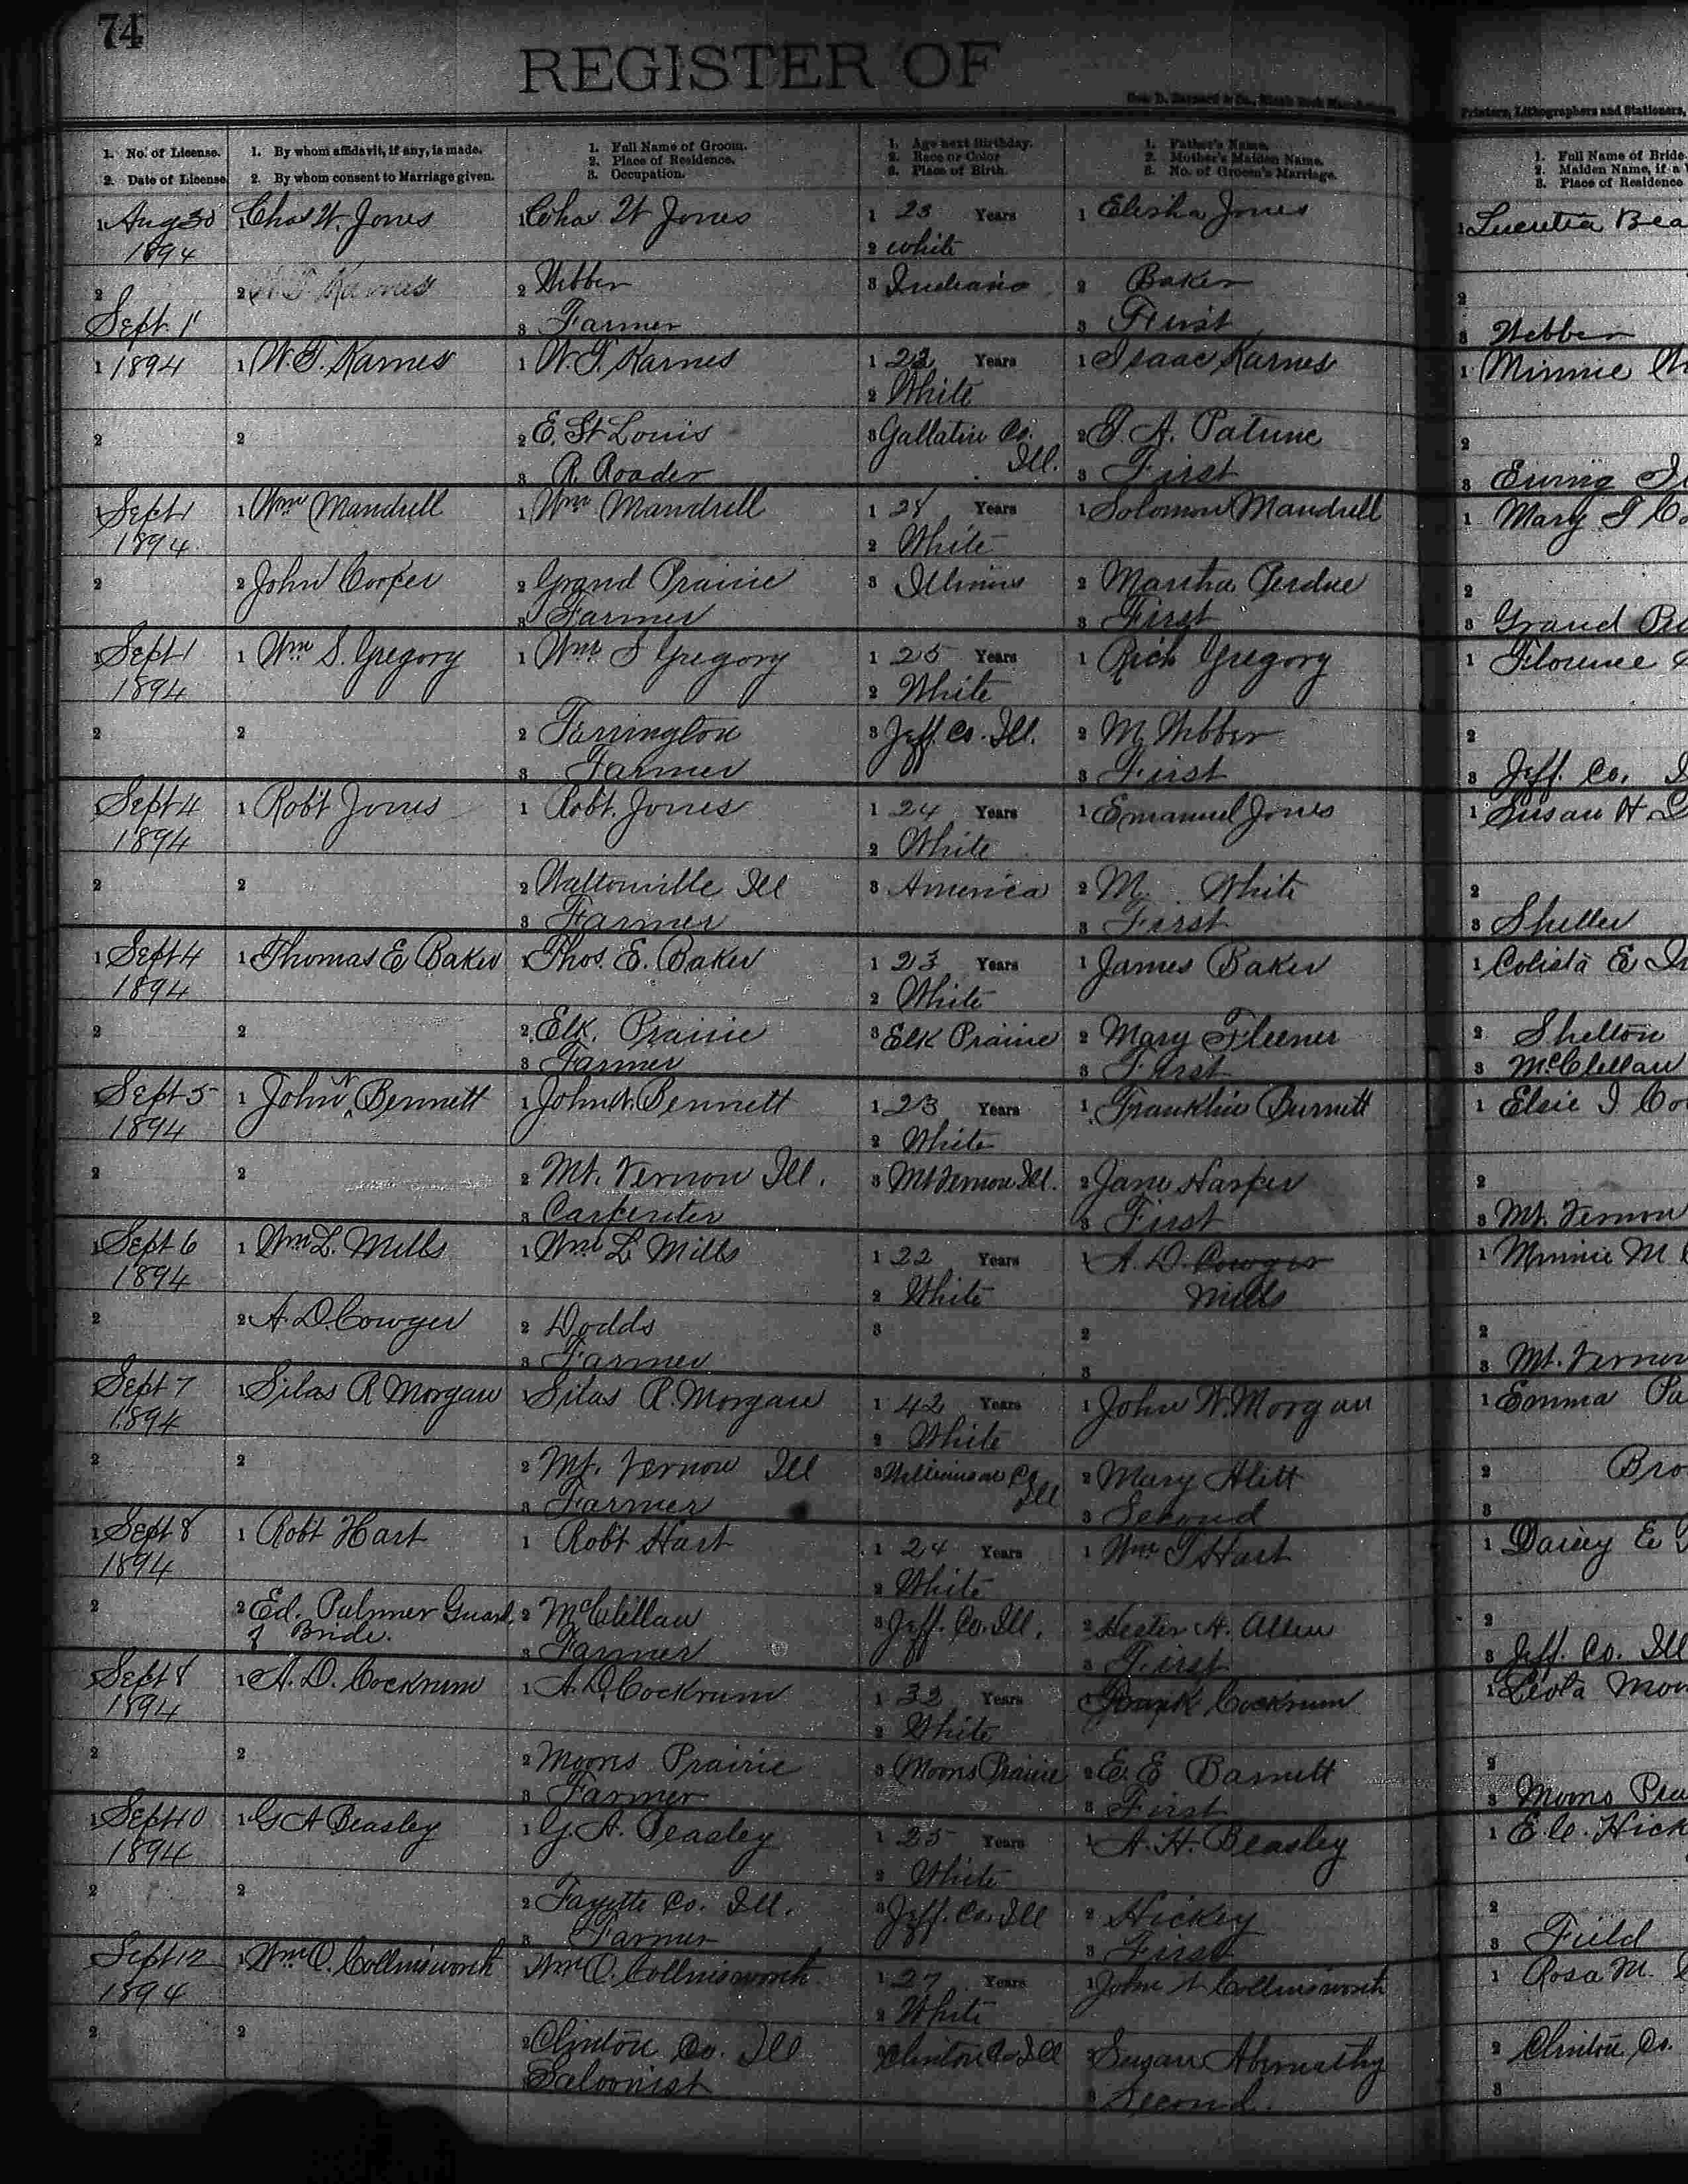 74
REGISTER OF
Geo. D. Barnard & Co., Blank Book Manufacturers
Printers, Lithographers and Stationers,
1. No. of License.
2. Date of License.
1. By whom affidavit, if any, is made.
2. By whom consent to Marriage given.
1. Full Name of Groom.
2. Place of Residence.
3. Occupation.
1. Age next Birthday.
2. Race or Color
3. Place of Birth.
1. Father's Name.
2. Mother's Maiden Name.
3. No. of Groom's Marriage.
1. Full Name of Bride
2. Maiden Name, if a
3. Place of Residence
1 Aug 30 1 Chas W. Jones 1 Chas W Jones 1 23 Years 1 Elisha Jones 1 Lucutia Bea
1894 2 White
2 2 W. T. Karnes 2 Webber 3 Indiana 2 Baker 2
Sept. 1 3 Farmer 3 First 3 Webber
1 1894 1 W. T. Karnes 1 W. T. Karnes 1 23 Years 1 Isaac Karnes 1 Minnie
2 White
2 2 2 E. St Louis 3 Gallatin Co. 2 T. A. Patune 2
Ill.
3 R. Roader 3 First 3 Ewing
1 Sept 1 1 Wm Mandrell 1 Wm Mandrell 1 28 Years 1 Solomon Mandrell 1 Mary
1894 2 White
2 2 John Cooper 2 Grand Prairie 3 Illinois 2 Martha Perdue 2
3 Farmer 3 First 3 Grand
1 Sept 1 1 Wm S. Gregory 1 Wm S Gregory 1 25 Years 1 Rich Gregory 1 Florence
1894 2 White
2 2 2 Farrington 3 Jeff. Co. Ill. 2 M. Webber 2
3 Farmer 3 First 3 Jeff. Co.
Sept 4 1 Robt Jones 1 Robt. Jones 1 24 Years 1 Emanuel Jones 1 Susan H.
1894 2 White
2 2 2 Waltonville Ill 3 America 2 M. White 2
3 Farmer 3 First 3 Sheller
1 Sept 4 1 Thomas E Baker 1 Thos. E. Baker 1 23 Years 1 James Baker 1 Colista E
1894 2 White
2 2 2 Elk Prairie 3 Elk Prairie 2 Mary Fleener 2 Shelton
3 Farmer 3 First 3 McClellan
1 Sept 5 1 John N Bennett 1 John N. Bennett 1 23 Years 1 Franklin Burnett 1 Elsie J
1894 2 White
2 2 2 Mt. Vernon Ill. 3 Mt Vernon Ill. 2 Jane Harper 2
3 Carpenter 3 First 3 Mt. Vernon
1 Sept 6 1 Wm L. Mills 1 Wm L Mills 1 22 Years 1 A. D. Cowger 1 Minnie M
1894 2 White Mills
2 2 A. D. Cowger 2 Dodds 3 2 2
3 Farmer 3 3 Mt. Vernon
Sept 7 1 Silas R Morgan 1 Silas R. Morgan 1 42 Years 1 John W. Morgan 1 Emma Pa
1894 2 White
2 2 2 Mt. Vernon Ill 3 Williamson Co 2 Mary Hitt 2 Bro
Ill
3 Farmer 3 Second 3
1 Sept 8 1 Robt Hart 1 Robt Hart 1 24 Years 1 Wm T Hart 1 Daisy E
1894 2 White
2 2 Ed. Pulmer Guard. 2 McClellan 3 Jeff. Co. Ill. 2 Hester A. Allen 2
of Bride.
3 Farmer 3 First 3 Jeff. Co. Ill
Sept 8 1 A. D. Cockrum 1 A. D. Cockrum 1 32 Years 1 Frank Cockrum 1 Leota
1894 2 White
2 2 2 Moores Prairie 3 Moores Prairie 2 E. E Barnett 2
3 Farmer 3 First 3 Moores
1 Sept 10 1 G A Beasley 1 G. A. Beasley 1 25 Years 1 A. H. Beasley 1 E. C. Hick
1894 2 White
2 2 2 Fayette Co. Ill. 3 Jeff. Co. Ill 2 Hickey 2
3 Farmer 3 First 3 Field
Sept 12 1 Wm O. Collinsworth Wm O. Collinsworth 1 27 Years 1 John W Collinsworth 1 Rosa M.
1894 2 White
2 2 2 Clinton Co. Ill 3 Clinton Co Ill 2 Susan Abernathy 2 Clinton Co.
Saloonist 3 Second. 3